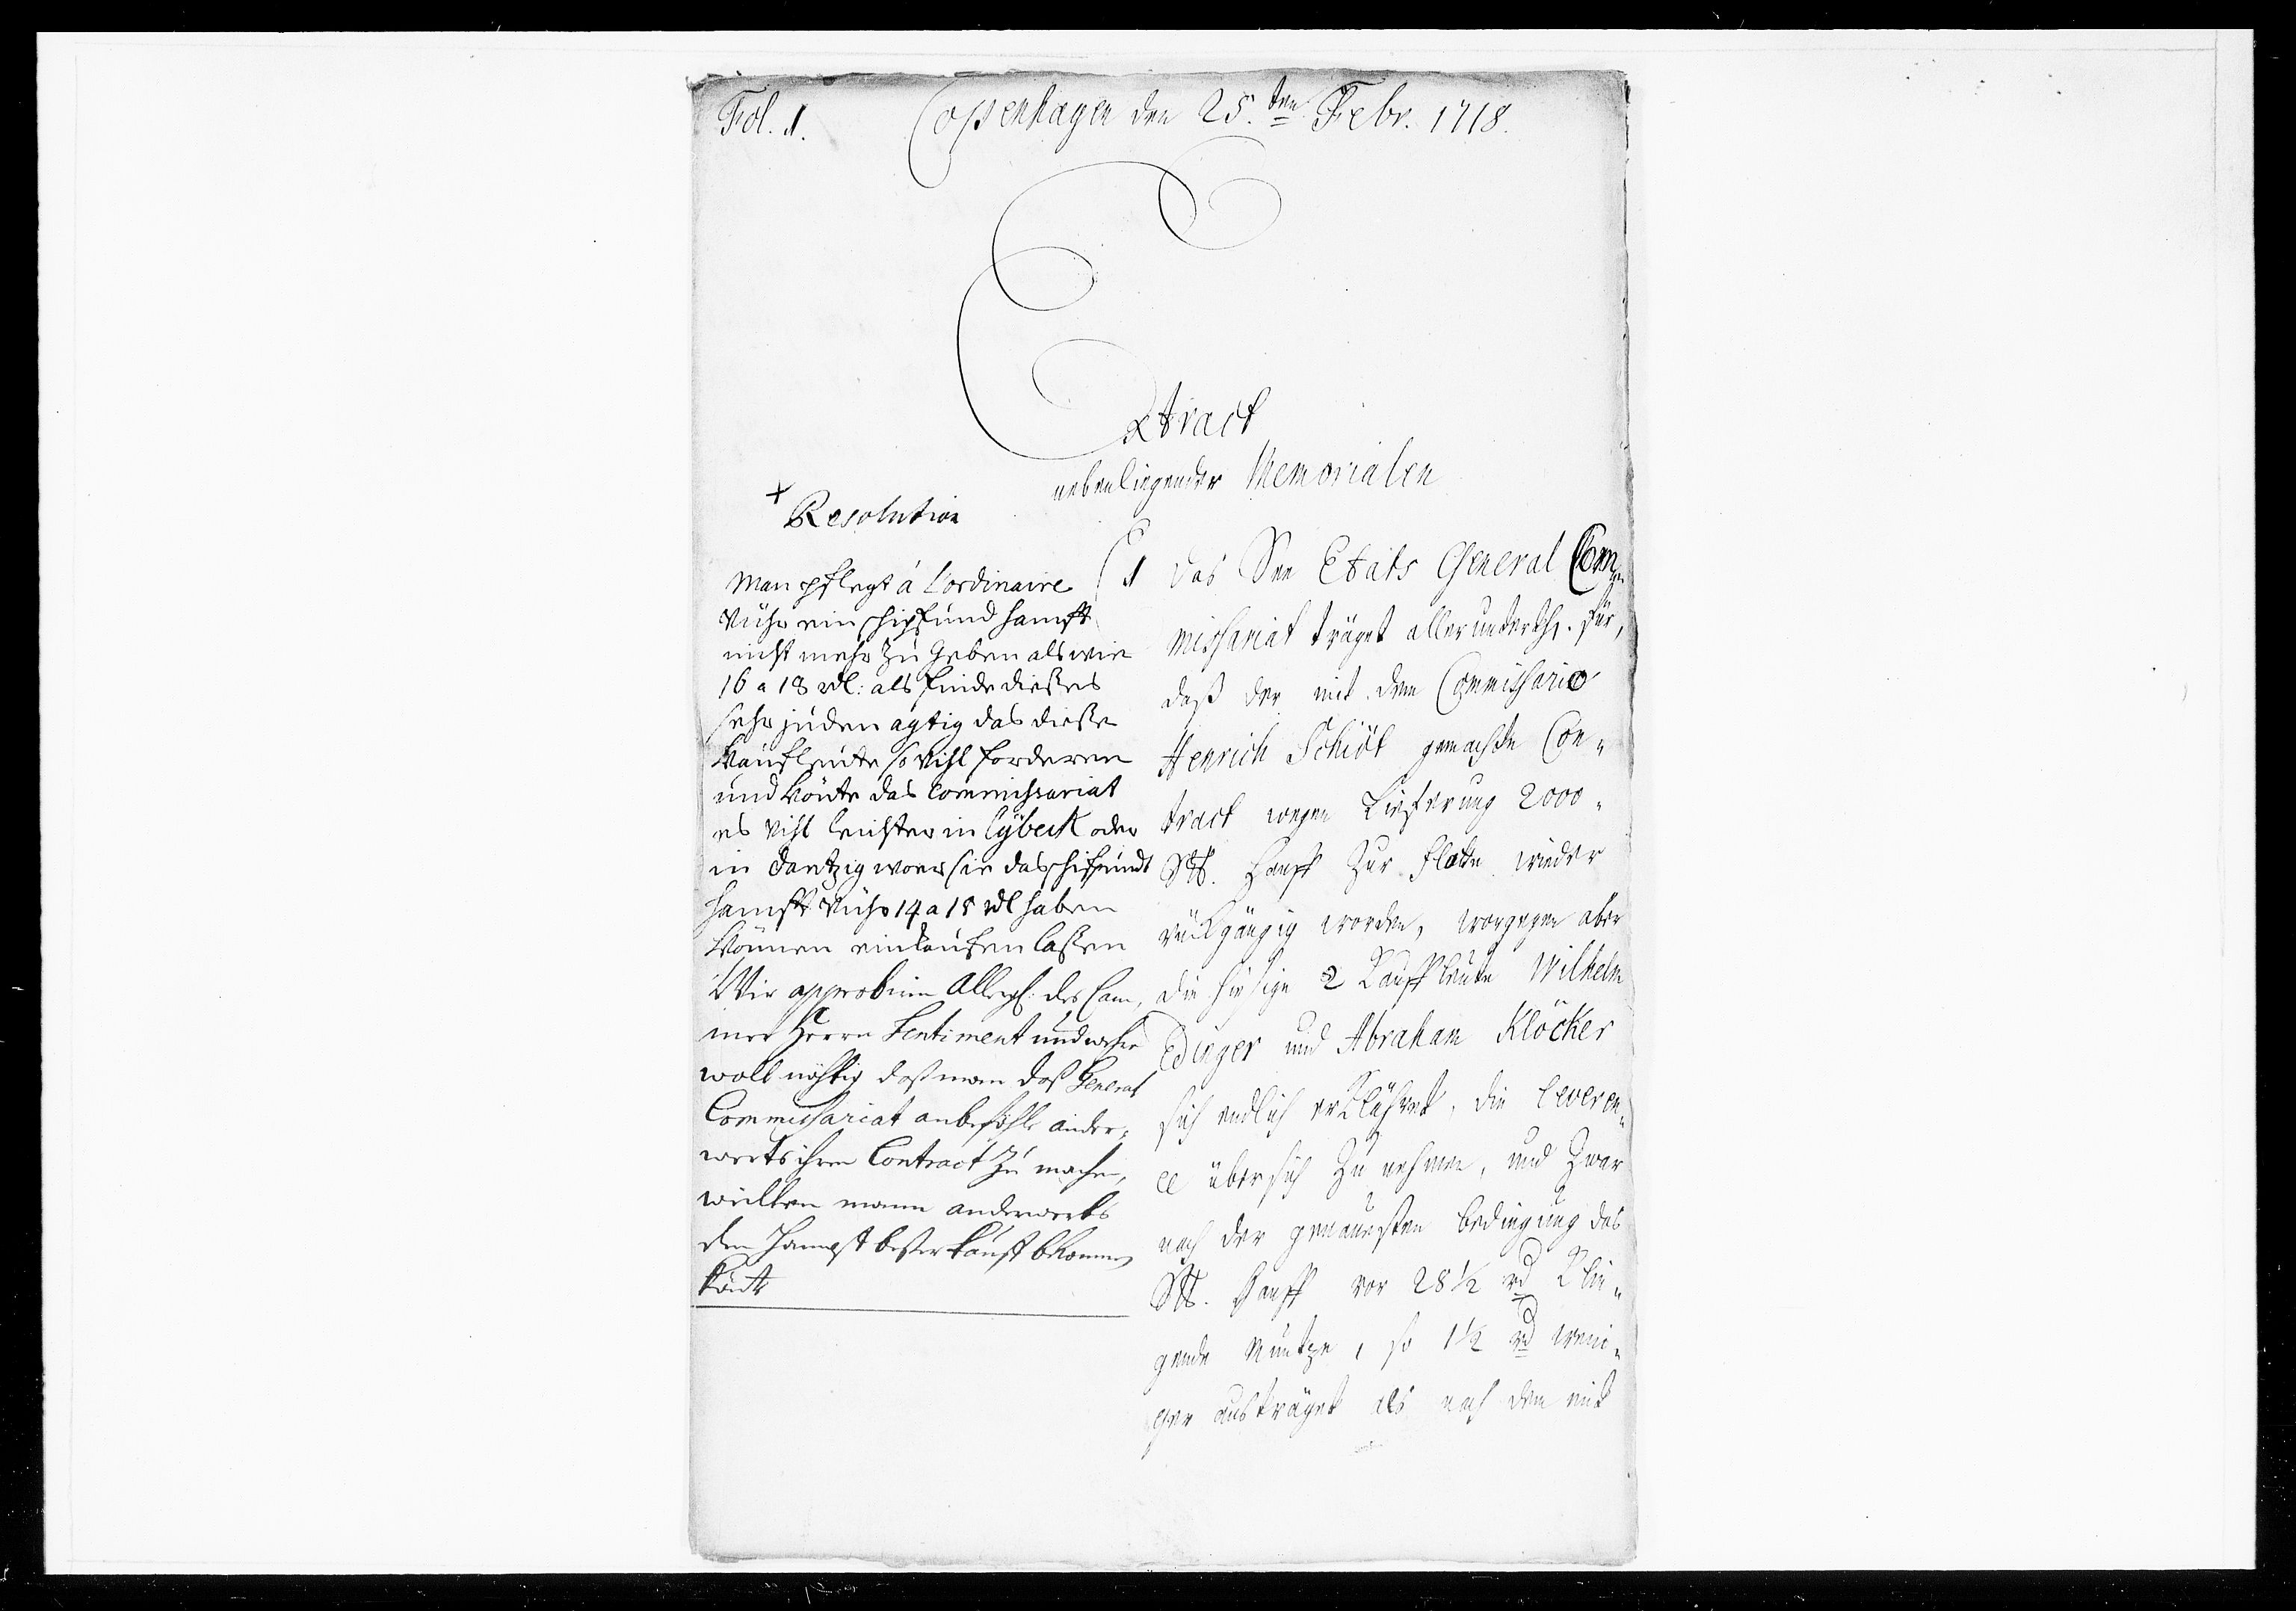 Fol. 1.
Copenhagen den 25.ten Febr. 1718.
Extract
nebenliegender Memorialen
+
Resolution
Man pflegt á l'ordinaire
vühr ein schipfund hampft
nicht mehr zu geben als wie
16 a 18 rdl: als finde dießes
sehr juden agtig das dieße
Kaufleute so vihl forderen
und könte das Commissariat
es vihl leichter in Lybeck oder
in Dantzig woer sie das schifpundt
hampft vühr 14 a 15 rdl haben
können einkaufen laßen
Wir approbiren Allergn: der Cam,
mer Herrn Sentiment und wehre
woll nöhtig daß man daß General
Commissariat anbefohle ander-
werts ihren Contract zu machen,
weillen mann anderwerts
den Hampft beßer kauft bekommen
könte
1 Das See Etats General Com-
missariat träget allerunterth. für,
daß der mit dem Commissario
Henrich Schiöt gemachte Con-
tract wegen Lieferung 2000-
S℔. Hanff zur Flotte wieder
rückgängig worden, worgegen aber
die hiesige 2 Kauffleute Wilhelm
Edinger und Abraham Klöcker
sich endlich erklähret, die leveren-
ce über sich zu nehmen, und zwar
nach der genauesten bedingung das
S℔. Hanff vor 28½ rd Klin-
gende Müntze, so 1½ rd weni-
ger austräget als nach dem mit